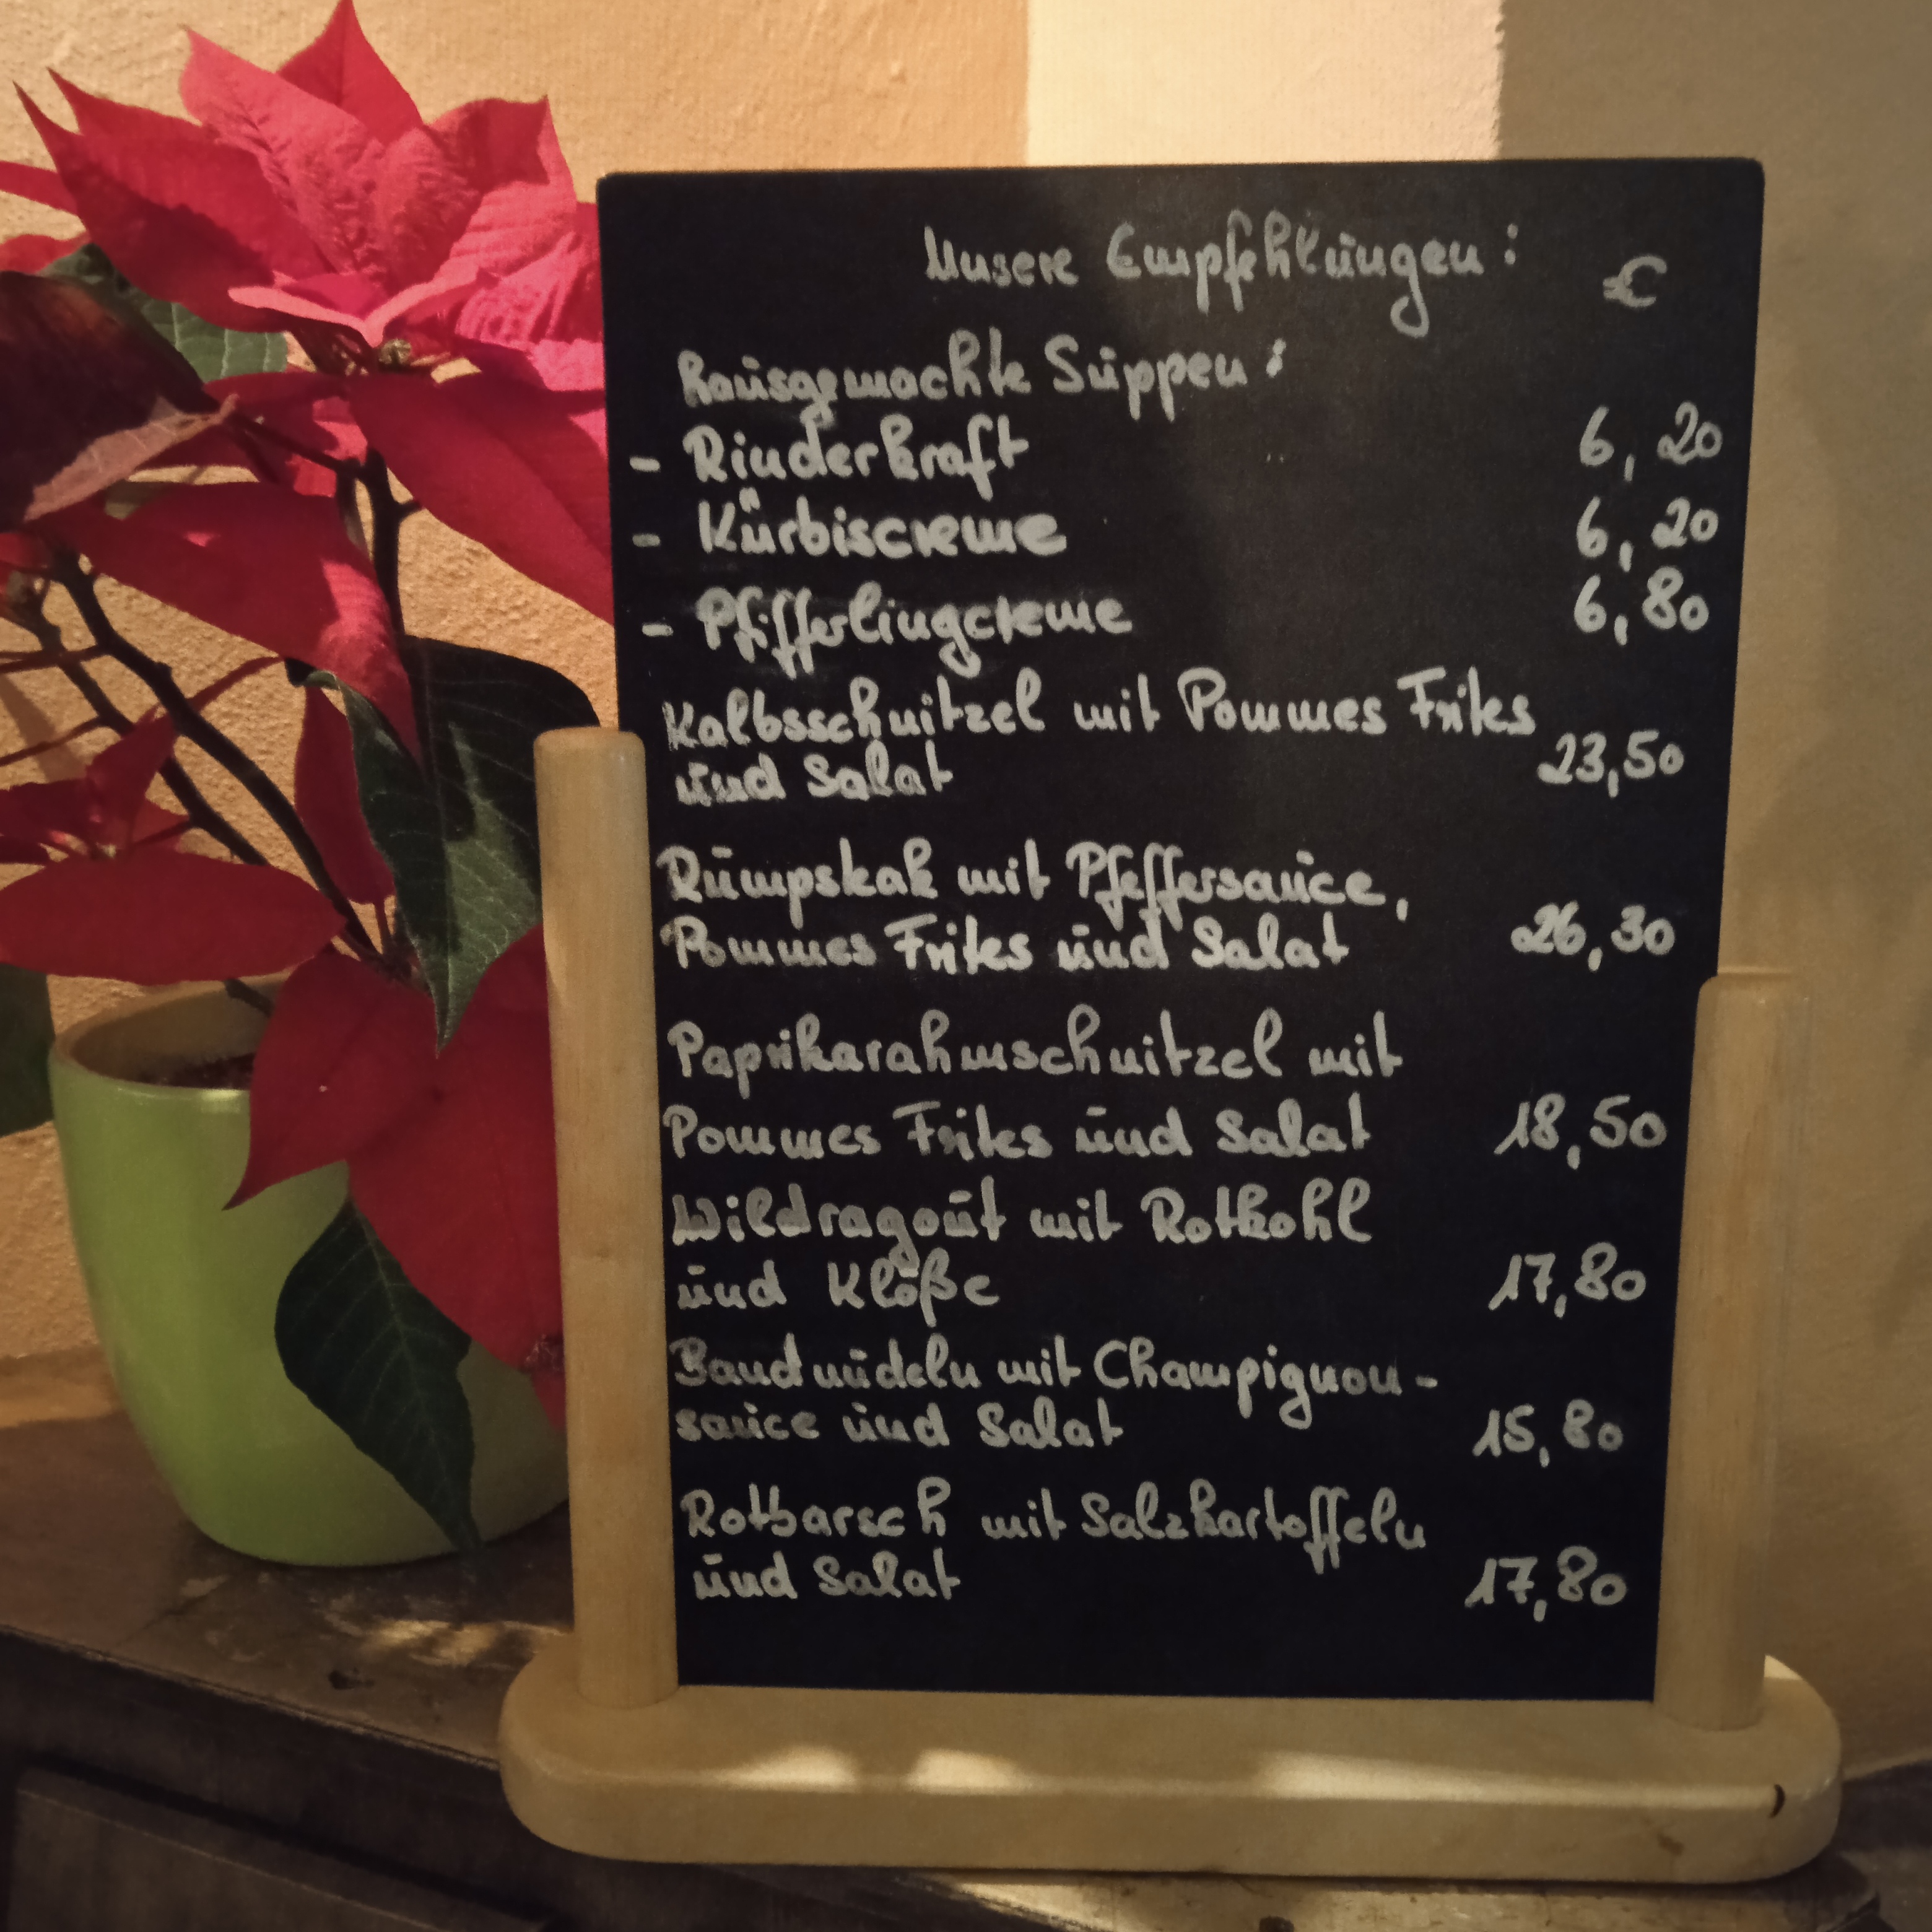 Unsere Empfehlungen: €
Hausgemachte Suppen:
- Rinderkraft 6,20
- Kürbiscreme 6,20
- Pfifferlingcreme 6,80
Kalbsschnitzel mit Pommes Frites
und Salat 23,50
Rumpskak mit Pfeffersauce,
Pommes Frites und Salat 26,30
Paprikarahmschnitzel mit
Pommes Frites und Salat 18,50
Wildragout mit Rotkohl
und Klöße 17,80
Bandnudeln mit Champignon-
sauce und Salat 15,80
Rotbarsch mit Salzkartoffeln
und Salat 17,80